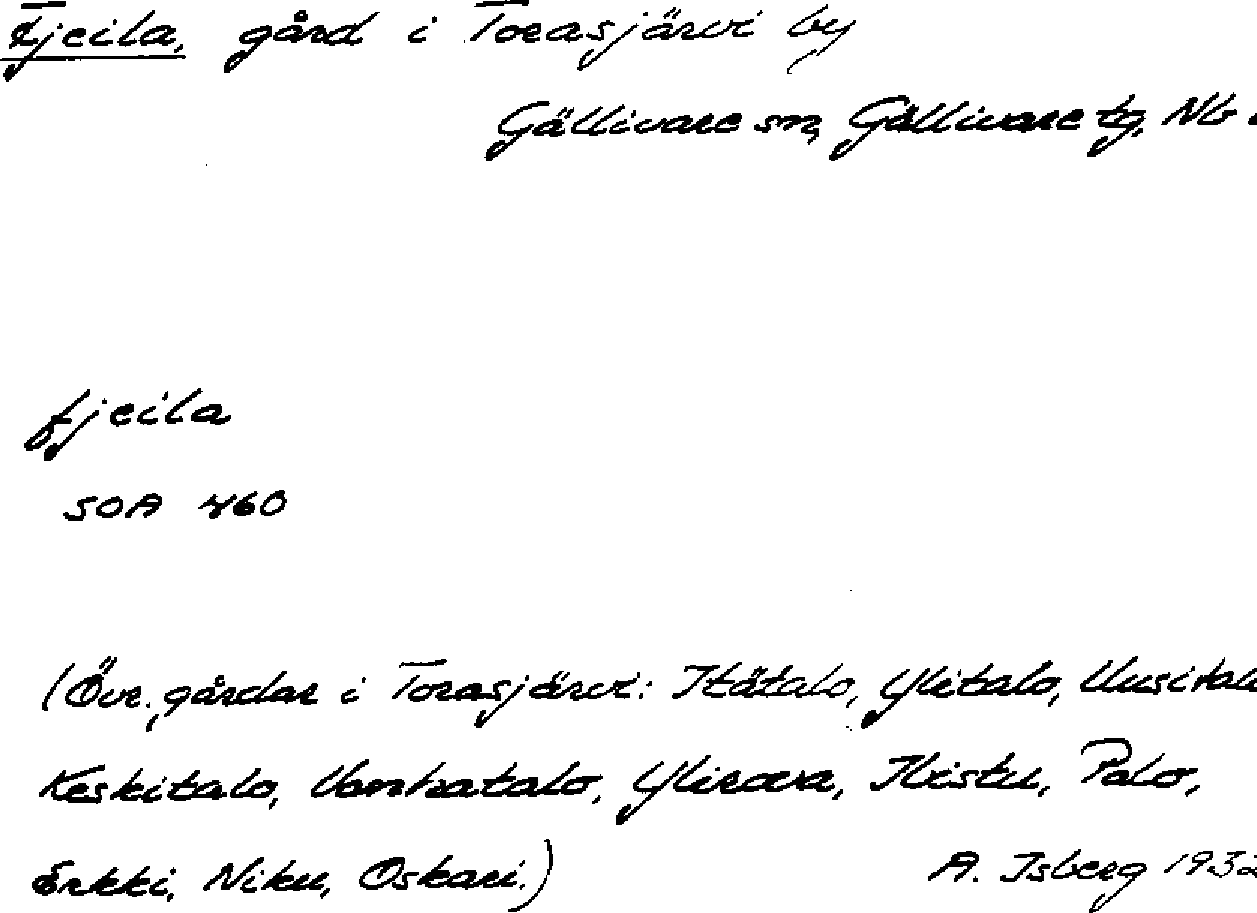 Fjeila, gård i Torasjärvi by
Gällivare sn, Gällivare tg, Nb
fjeila
SOA 460
(Övr. gårdar i Torasjärvi: Itätalo, Ylitalo, Uusitalo
Keskitalo, Vanhatalo, Ylirova, Ilistu, Palo,
Erkki, Niku, Oskari.)
A. Isberg 1932